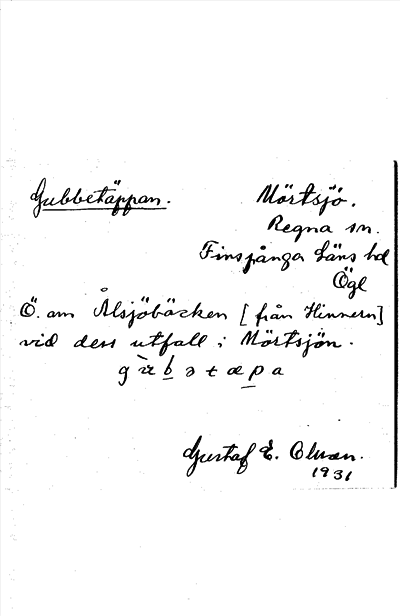 Gubbetäppan. Mörtsjö.
Regna sn.
Finspånga Läns hd
Ögl
Ö. om Ålsjöbäcken [från Hinnern]
vid dess utfall i Mörtsjön.
Gustaf E. Olman.
1931